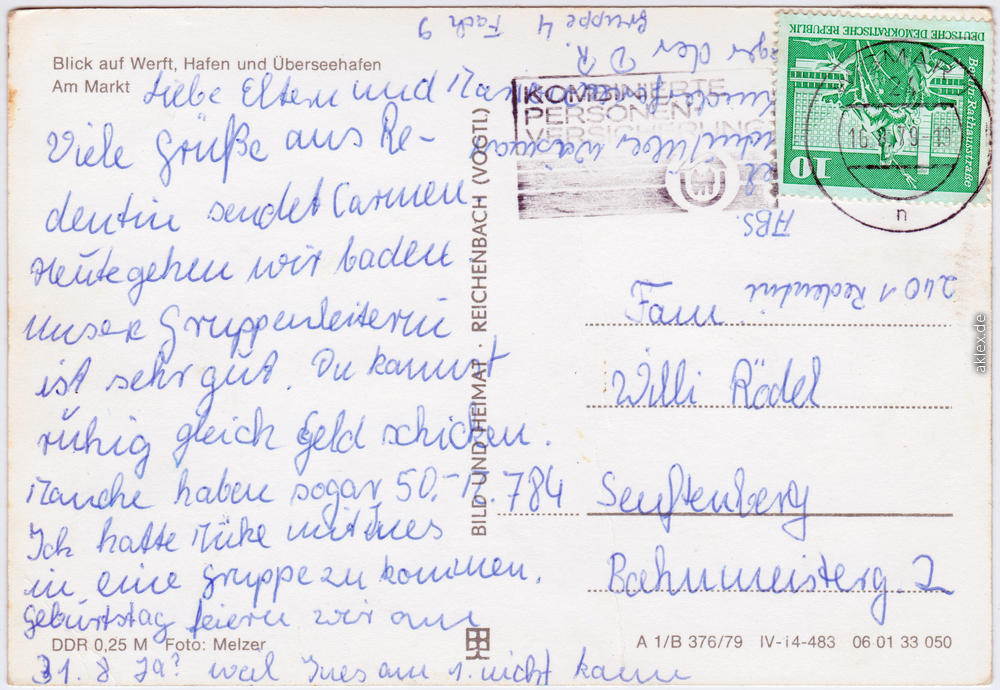 Blick auf Werft, Hafen und Überseehafen
Am Markt
Liebe Eltern und
Viele Grüße aus Re-
dentin sendet Carmen
Heute gehen wir baden
Unsere Gruppenleiterin
ist sehr gut. Du kannst
ruhig gleich Geld schicken.
Manche haben sogar 50,- M.
Ich hatte Mühe mit Ines
in eine Gruppe zu kommen.
Geburtstag feiern wir am
31. 8 Ja? weil Ines am 1. nicht kann
DDR 0,25 M Foto: Melzer
BILD UND HEIMAT · REICHENBACH (VOGTL)
KOMBINIERTE
PERSONEN-
VERSICHERUNG
DEUTSCHE DEMOKRATISCHE REPUBLIK
Berlin, Rathausstraße
10
16.8.79
n
ABS.
über Wismar
der D.R.
Gruppe 4 Fach 9
2401 Redentin
Fam.
Willi Rödel
784 Senftenberg
Bahnmeisterg. 2
A 1/B 376/79 IV-i4-483 06 01 33 050
aklex.de